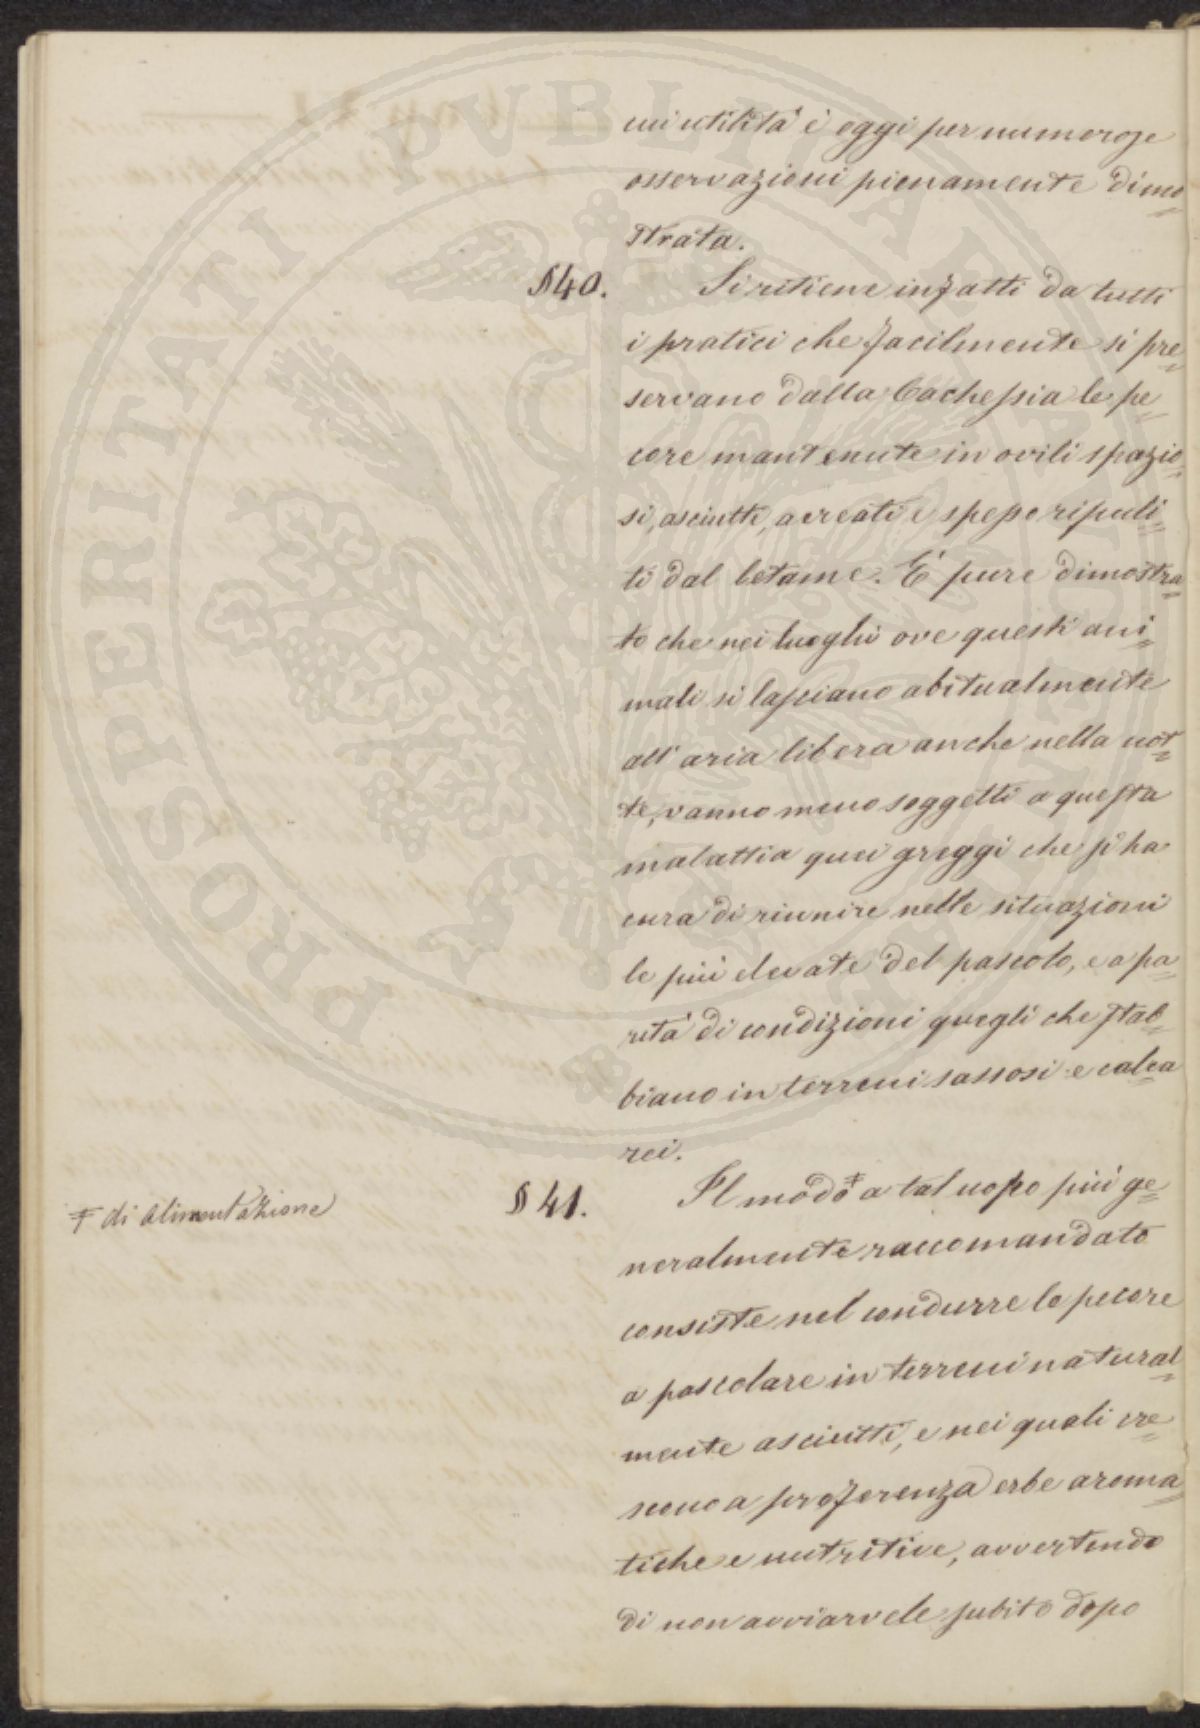 cui utilità è oggi per numerose
osservazioni pienamente dimo=
strata.
§ 40. Si ritiene infatti da tutti
i pratici che facilmente si pre=
servano dalla Cachessia le pe=
core mantenute in ovili spazio=
si, asciutti, aereati e spesso ripuli=
ti dal letame. È pure dimostra=
to che nei luoghi ove questi ani=
mali si lasciano abitualmente
all'aria libera anche nella not=
te, vanno meno soggetti a questa
malattia quei greggi che si ha
cura di riunire nelle situazioni
le più elevate del pascolo, e a pa=
rità di condizioni quegli che stab=
biano in terreni sassosi e calca
rei.
§ 41. Il modo ‡ a tal uopo più ge=
‡ di alimentazione
neralmente raccomandato
consiste nel condurre le pecore
a pascolare in terreni natural=
mente asciutti, e nei quali cre=
scono a preferenza erbe aroma=
tiche e nutritive, avvertendo
di non avviarvele subito dopo
PROSPERITATI PUBLICAE AUGENDAE